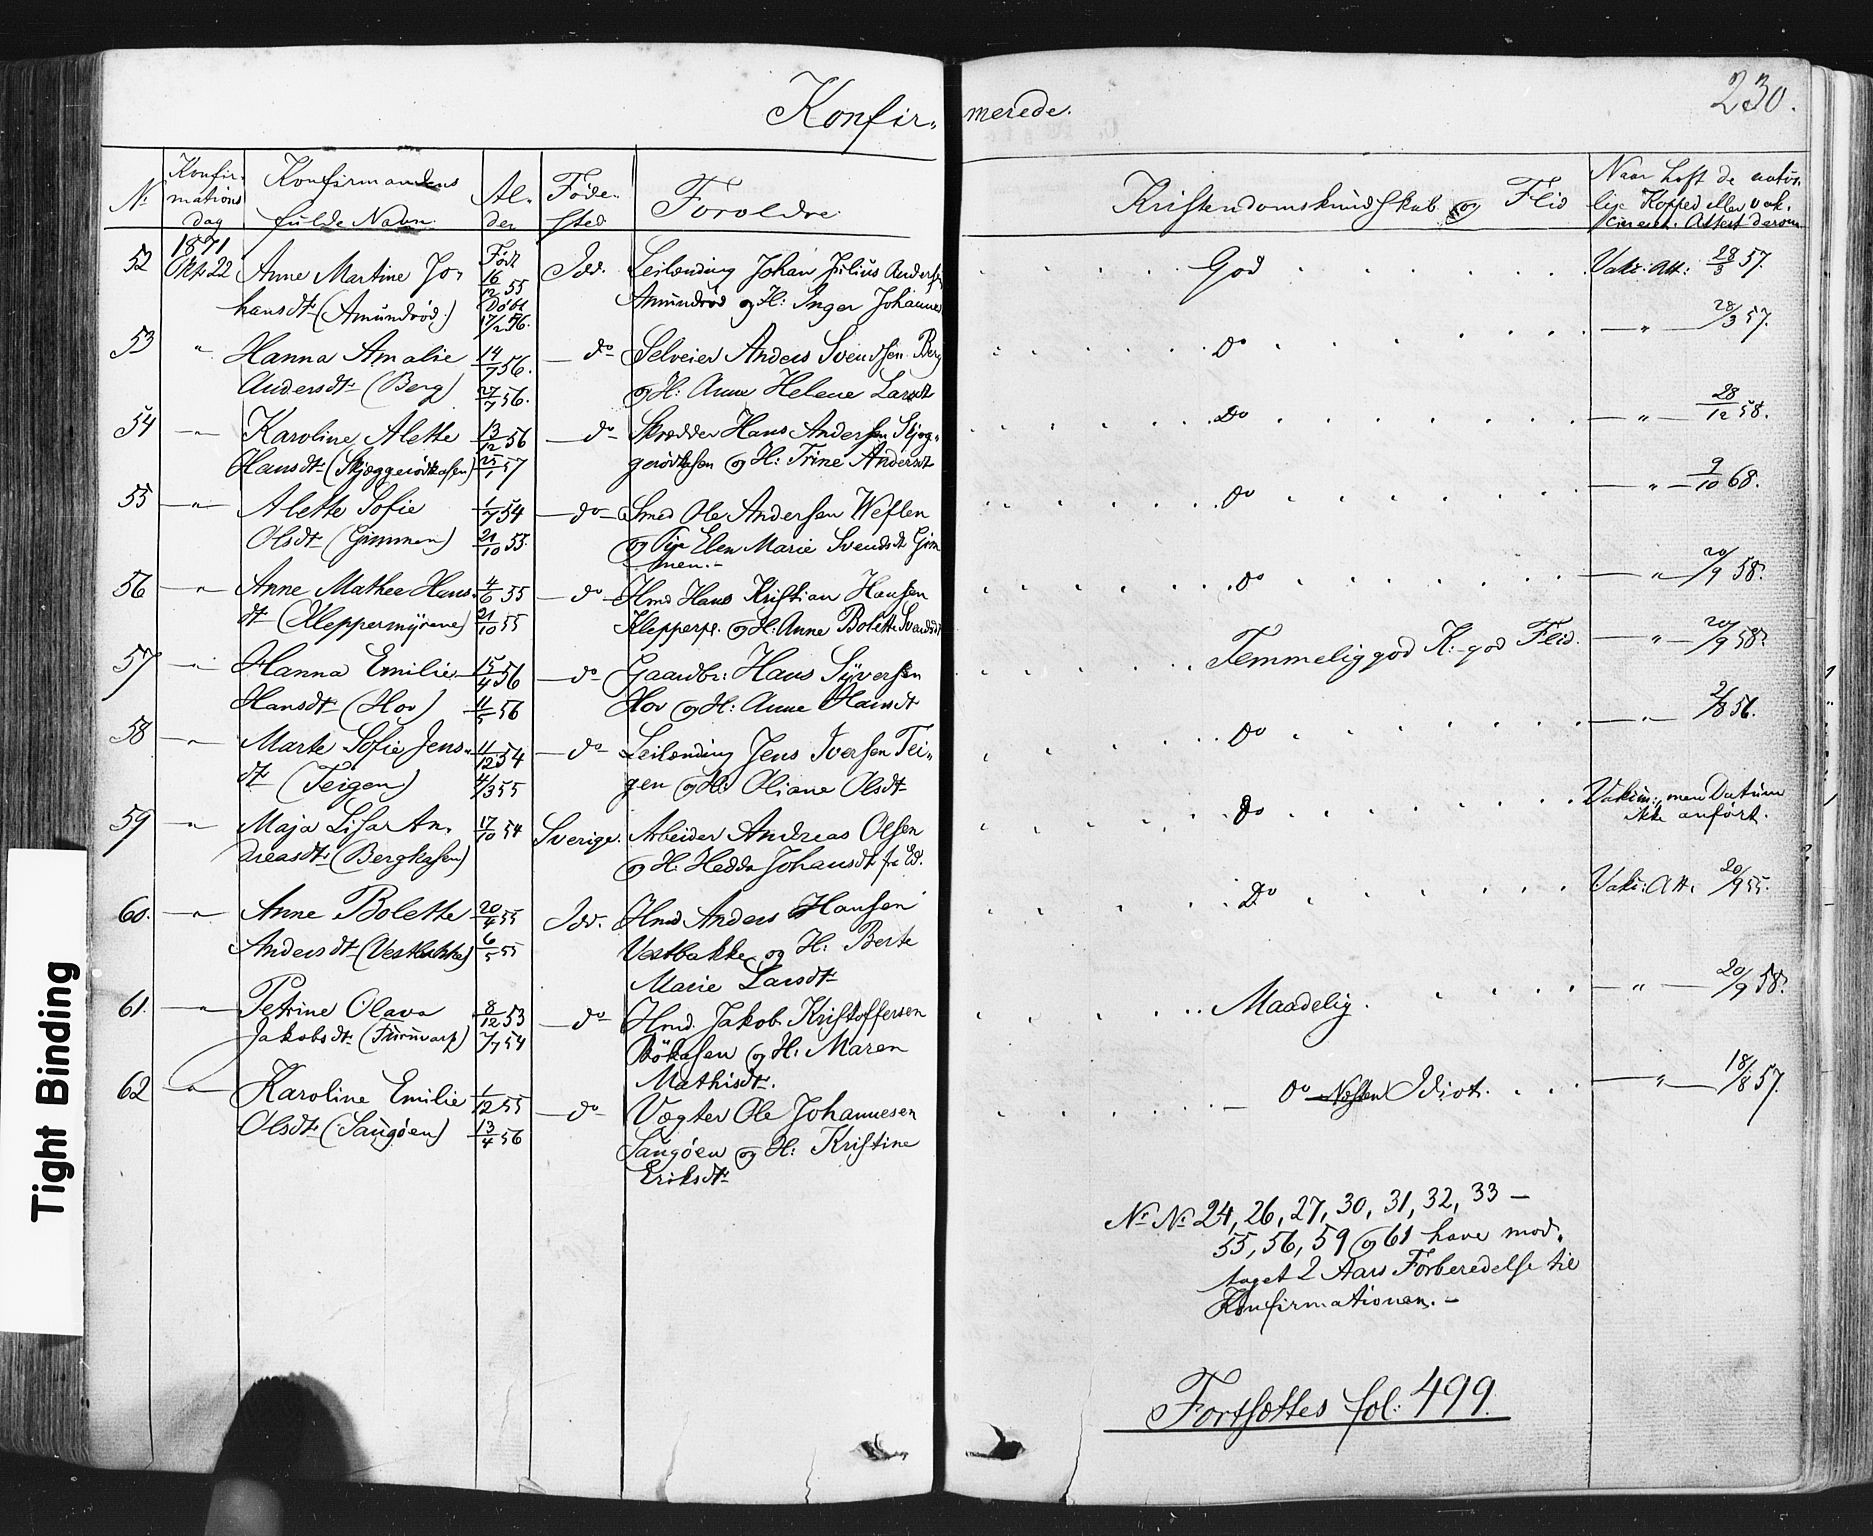 Konfir- merede.
230.
No
Konfir-
mations
dag
Konfirmandens
fulde Navn.
Al-
der
Føde-
sted
Forældre.
Kristendomskundskab og Flid
Naar haft de natur-
lige Kopper eller vak-
cineret. Attest derom
1871
52 Okt. 22 Anne Martine Jo- Født 16/12 55 Idd. Leilænding Johan Julius Anders God Vaks: Att: 28/3 57.
hansdt (Amundrød) Døbt 17/2 56. Amundrød og H: Inger Johanne
53 " Hanna Amalie 14/7 56. do Selveier Anders Svendsen Berg Do " 28/3 57.
Andersdt (Berg) 27/7 56. og H: Anne Helene Larsdt
54 " Karoline Alette 13/12 56 do Skrædder Hans Andersen Skjeg- Do " 28/12 58.
Hansdt (Skjæggerødkasen) 25/1 57 gerødkasen og H: Trine Andersdt
55 " Alette Sofie 1/7 54 do Smed Ole Andersen Weflen Do " 9/10 68.
Olsdt (Gimmen) 21/10 55. og Pige Elen Marie Svendsdt Gim
men.-
56 " Anne Mathea Hans- 4/6 55 do Hmd Hans Kristian Hansen Do " 20/9 58.
dt (Kleppermyrene) 21/10 55 Klepperpl. og H: Anne Bolette Svendsdt
57 " Hanna Emilie 15/4 56 do Gaardbr: Hans Syversen Temmelig god K:-god Flid. " 20/9 58.
Hansdt (Hov) 11/5 56 Hov og H: Anne Hansdt
58 " Marte Sofie Jens- 11/12 54 do Leilænding Jens Iversen Tei- Do " 2/8 56.
dt (Teigen) 4/3 55 gen og H: Oliane Olsdt
59 " Maja Lisa An- 17/10 54 Sverige. Arbeider Andreas Olsen Do Vakcin:, men Datum
dreasdt (Bergkasen) og H: Hedda Johansdt fra Ed. ikke anført.
60. " Anne Bolette 20/4 55 Idd. Hmd Anders Hansen Do Vaks: Att. 20/9 55.
Andersdt (Vestbakke) 6/5 55 Vestbakke og H: Berte
Marie Larsdt
61. " Petrine Olava 8/12 53 do Hmd. Jakob Kristoffersen Maadelig. " 20/9 58.
Jakobsdt () 7/7 54 Bøkasen og H: Maren
Mathisdt.
62 " Karoline Emilie 1/12 55 do Vægter Ole Johannesen Do Næsten Idiot. " 18/8 57.
Olsdt (Saugøen) 13/4 56 Saugøen og H: Kristine
Eriksdt
No No 24, 26, 27, 30, 31, 32, 33 -
55, 56, 59 og 61 have mod-
taget 2 Aars Forberedelse til
Konfirmationen. -
Fortsættes fol: 499.
Tight Binding